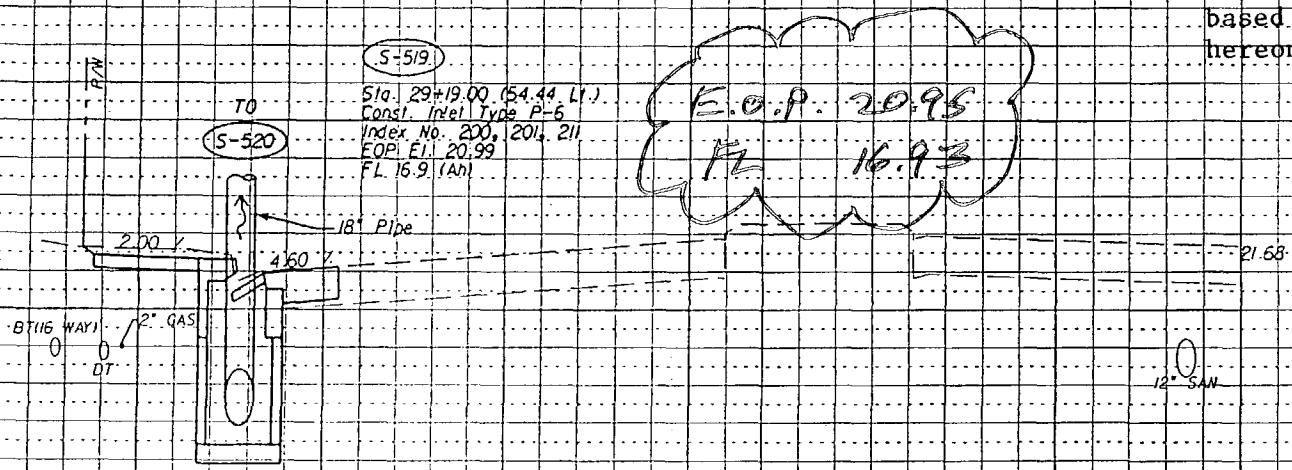 based
hereon
S-519
Sta. 29+19.00 (54.44 Lt.)
Const. Inlet Type P-6
Index No. 200, 201, 211
EOP El. 20.99
FL 16.9 (Ah)
E.O.P. 20.95
FL 16.93
R/W
TO
S-520
18" Pipe
2.00 %
4.60 %
21.68
BT(16 WAY)
2" GAS
DT
12" SAN